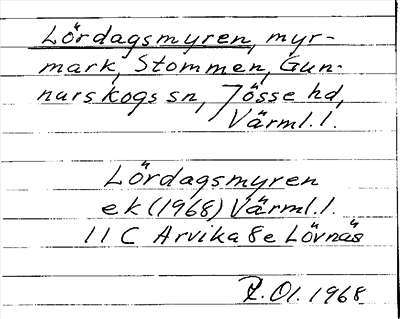 Lördagsmyren, myr-
mark, Stommen, Gun-
narskogs sn, Jösse hd,
Värml. l.
Lördagsmyren
ek (1968) Värml. l.
11 C Arvika 8e Lövnäs
R. Ol. 1968